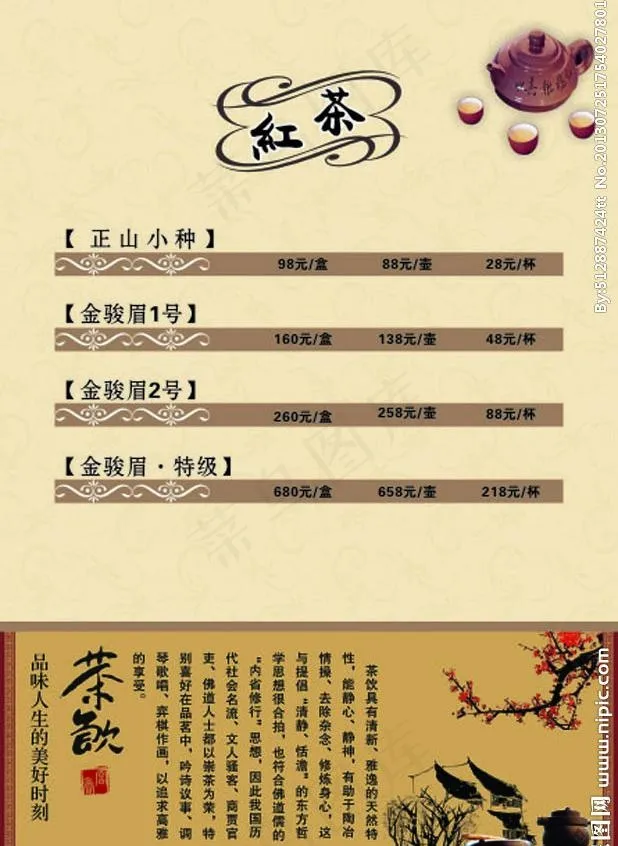 紅茶
【 正山小种 】
98元/盒 88元/壶 28元/杯
【金骏眉1号】
160元/盒 138元/壶 48元/杯
【金骏眉2号】
260元/盒 258元/壶 88元/杯
【金骏眉·特级】
680元/盒 658元/壶 218元/杯
茶饮具有清新、雅逸的天然特
性，能静心、静神，有助于陶冶
情操、去除杂念、修炼身心，这
与提倡“清静、恬澹”的东方哲
学思想很合拍，也符合佛道儒的
“内省修行”思想，因此我国历
代社会名流、文人骚客、商贾官
吏、佛道人士都以崇茶为荣，特
别喜好在品茗中，吟诗议事、调
琴歌唱、弈棋作画，以追求高雅
的享受。
茶飲
品味人生的美好时刻
By:512887424tt No.20130725175402780​1
图网 www.nipic.com
菜鸟图库